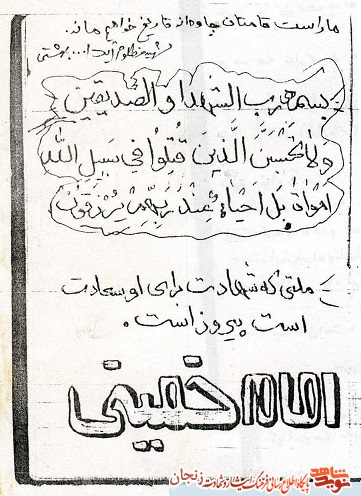 ما راست قامتان جاودانه تاریخ خواهیم ماند.
شهید مظلوم آیت ا... بهشتی
بسم رب الشهدا و الصدیقین
ولا تحسبن الذین قتلوا فی سبیل الله
امواتا بل احیاء عند ربهم یرزقون
ملتی که شهادت برای او سعادت
است پیروز است.
امام خمینی
نوید شاهد
پایگاه اطلاع رسانی فرهنگ ایثار و شهادت زنجان